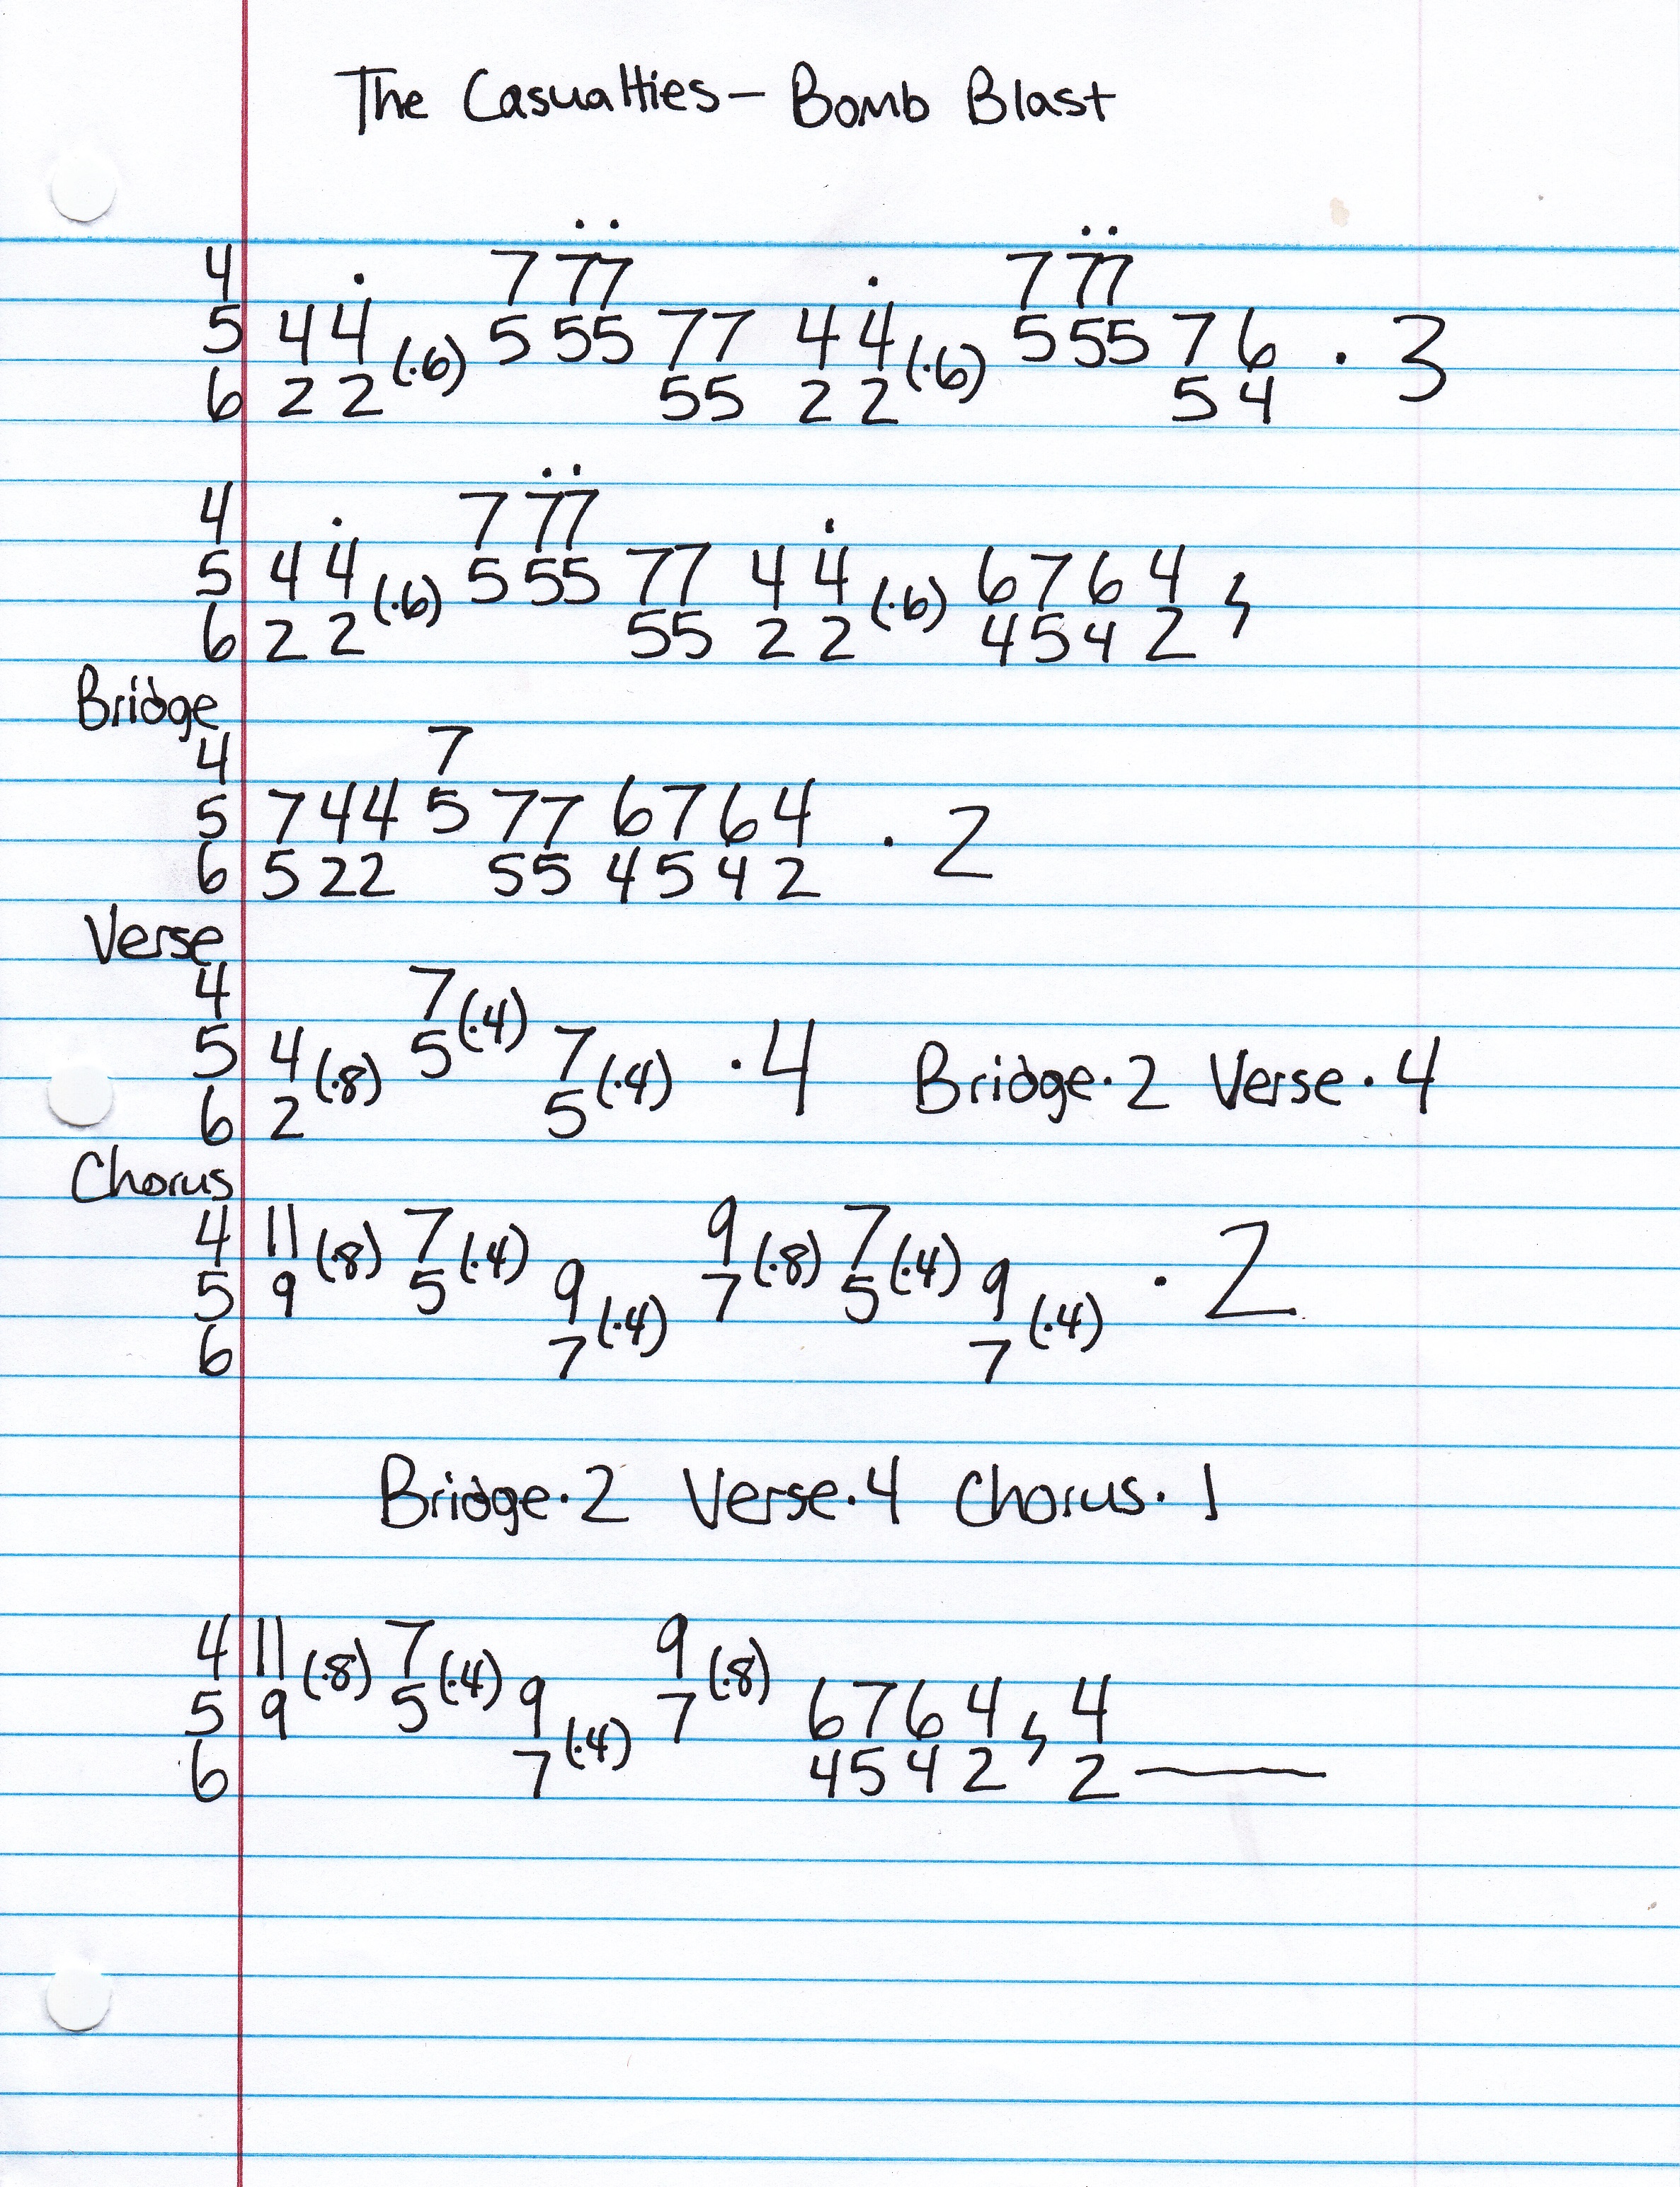 The Casualties – Bomb Blast
4 7 7̇7̇ 7 7̇7̇
5 4 4̇ (·6) 5 55 77 4 4̇ (·6) 5 55 7 6 · 3
6 2 2 55 2 2 5 4
4 7 7̇7̇
5 4 4̇ (·6) 5 55 77 4 4̇ (·6) 6 7 6 4 𝄽
6 2 2 55 2 2 4 5 4 2
Bridge
4 7
5 7 4 4 5 7 7 6 7 6 4 · 2
6 5 2 2 5 5 4 5 4 2
Verse
4 7 (·4)
5 4 (·8) 5 7 (·4) · 4 Bridge · 2 Verse · 4
6 2 5
Chorus
4 11 (·8) 7 (·4) 9 (·8) 7 (·4)
5 9 5 9 (·4) 7 5 9 (·4) · 2
6 7 7
Bridge · 2 Verse · 4 Chorus · 1
4 11 (·8) 7 (·4) 9 (·8)
5 9 5 9 (·4) 7 6 7 6 4 𝄽 4
6 7 4 5 4 2 2 —